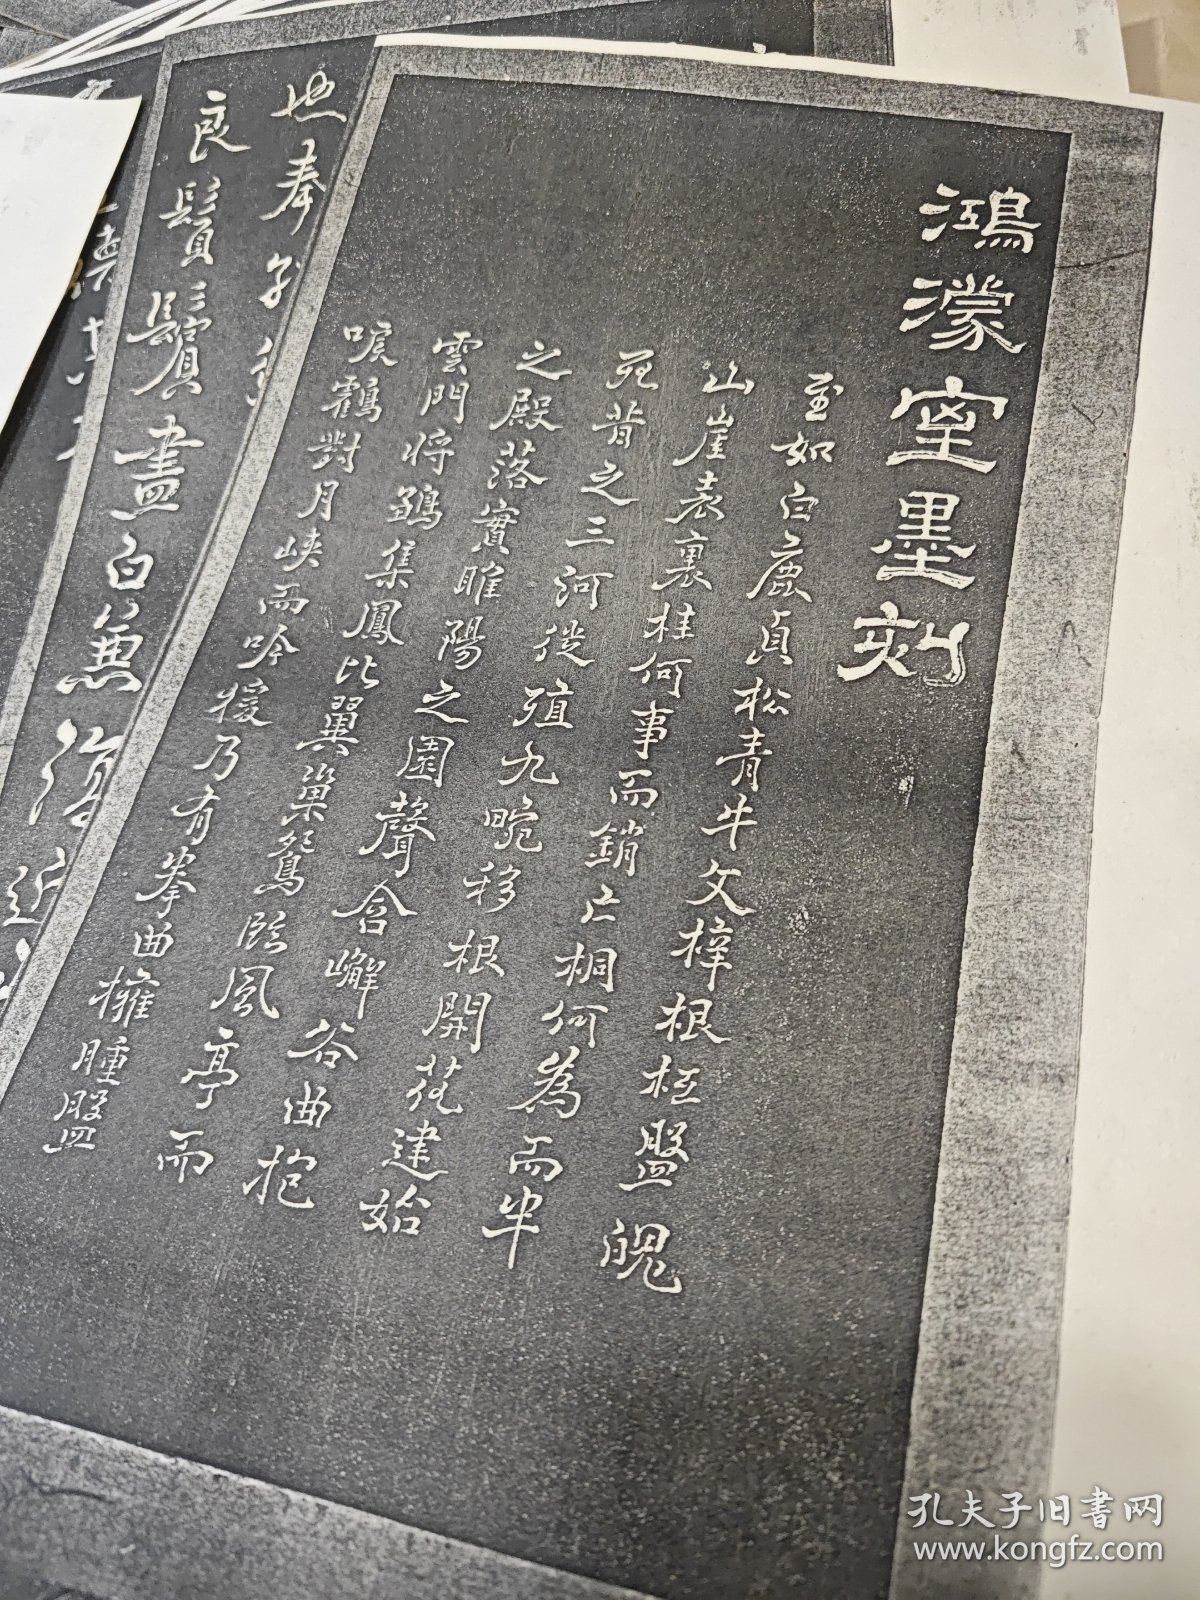 鴻濛室墨刻
至如白鹿貞松青牛文梓根柢盤魄
山崖表裏桂何事而銷亡桐何為而半
死昔之三河徙殖九畹移根開花建始
之殿落實睢陽之園聲含嶰谷曲抱
雲門將鶵集鳳比翼巢鴛臨風亭而
唳鶴對月峽而吟猨乃有拳曲擁腫盤
也奉
良鬚鬢盡白蒼
近
孔夫子旧书网
www.kongfz.com